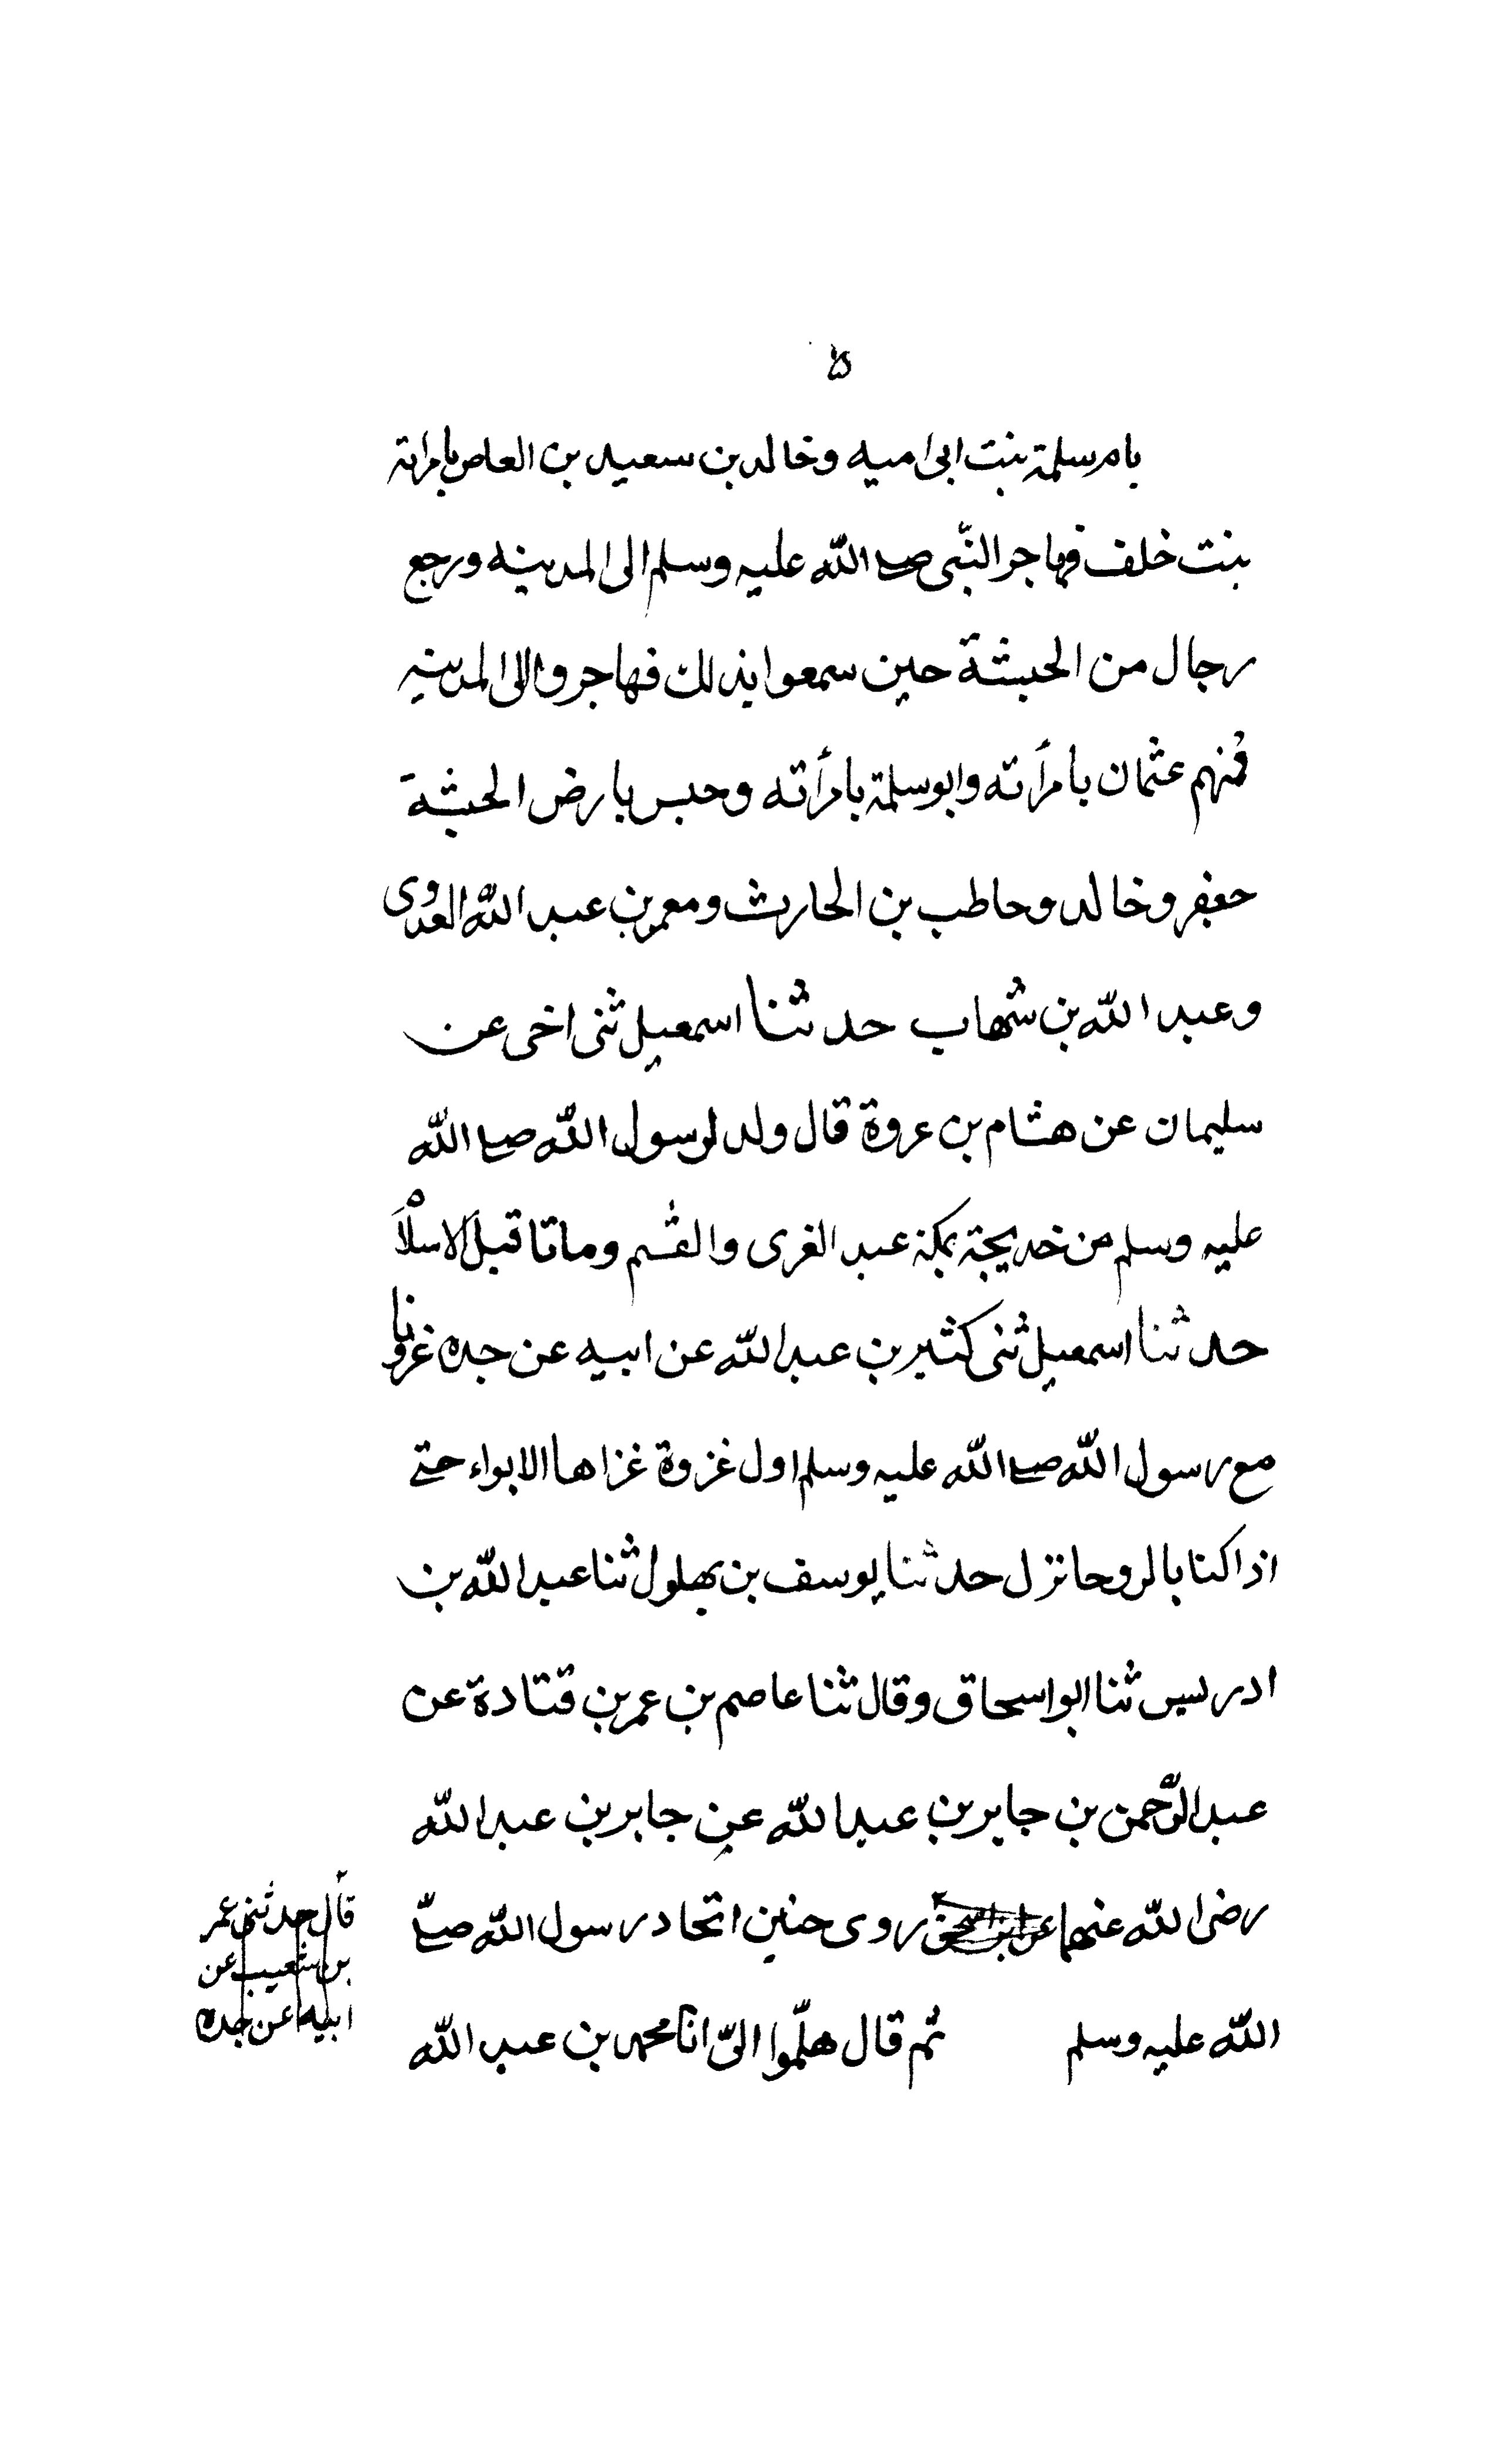 ۵
بام سلمة بنت ابى اميه وخالد بن سعيد بن العاص بامراته
بنت خلف فهاجر النّبى صلى اللّٰه عليه وسلم الى المدينه ورجع
رجال من الحبشة حين سمعوا بذلك فهاجروا الى المدينه
فمنهم عثمان بامرأته وابو سلمة بامرأته وحبس بارض الحبشة
جعفر وخالد وحاطب بن الحارث ومعمر بن عبد اللّٰه العدوى
وعبد اللّٰه بن شهاب حدثنا اسمعيل ثنى اخى عن
سليمان عن هشام بن عروة قال ولد لرسول اللّٰه صلى اللّٰه
عليه وسلم من خديجة بمكة عبد الغرى والقسم وماتا قبل الاسلام
حدثنا اسمعيل ثنى كثير بن عبد اللّٰه عن ابيه عن جده غزونا
مع رسول اللّٰه صلى اللّٰه عليه وسلم اول غزوة غزاها الابواء حتى
اذا كنا بالروحا نزل حدثنا يوسف بن بهلول ثنا عبد اللّٰه بن
ادريس ثنا ابو اسحاق وقال ثنا عاصم بن عمر بن قتادة عن
عبد الرّحمن بن جابر بن عبد اللّٰه عن جابر بن عبد اللّٰه
رضى اللّٰه عنهما عن ابن اسحق روى حنين اتحاد رسول اللّٰه صلى
اللّٰه عليه وسلم ثم قال هلّموا الىّ انا محمد بن عبد اللّٰه
قال حدثنى عمر
بن شعيب عن
ابيه عن جده